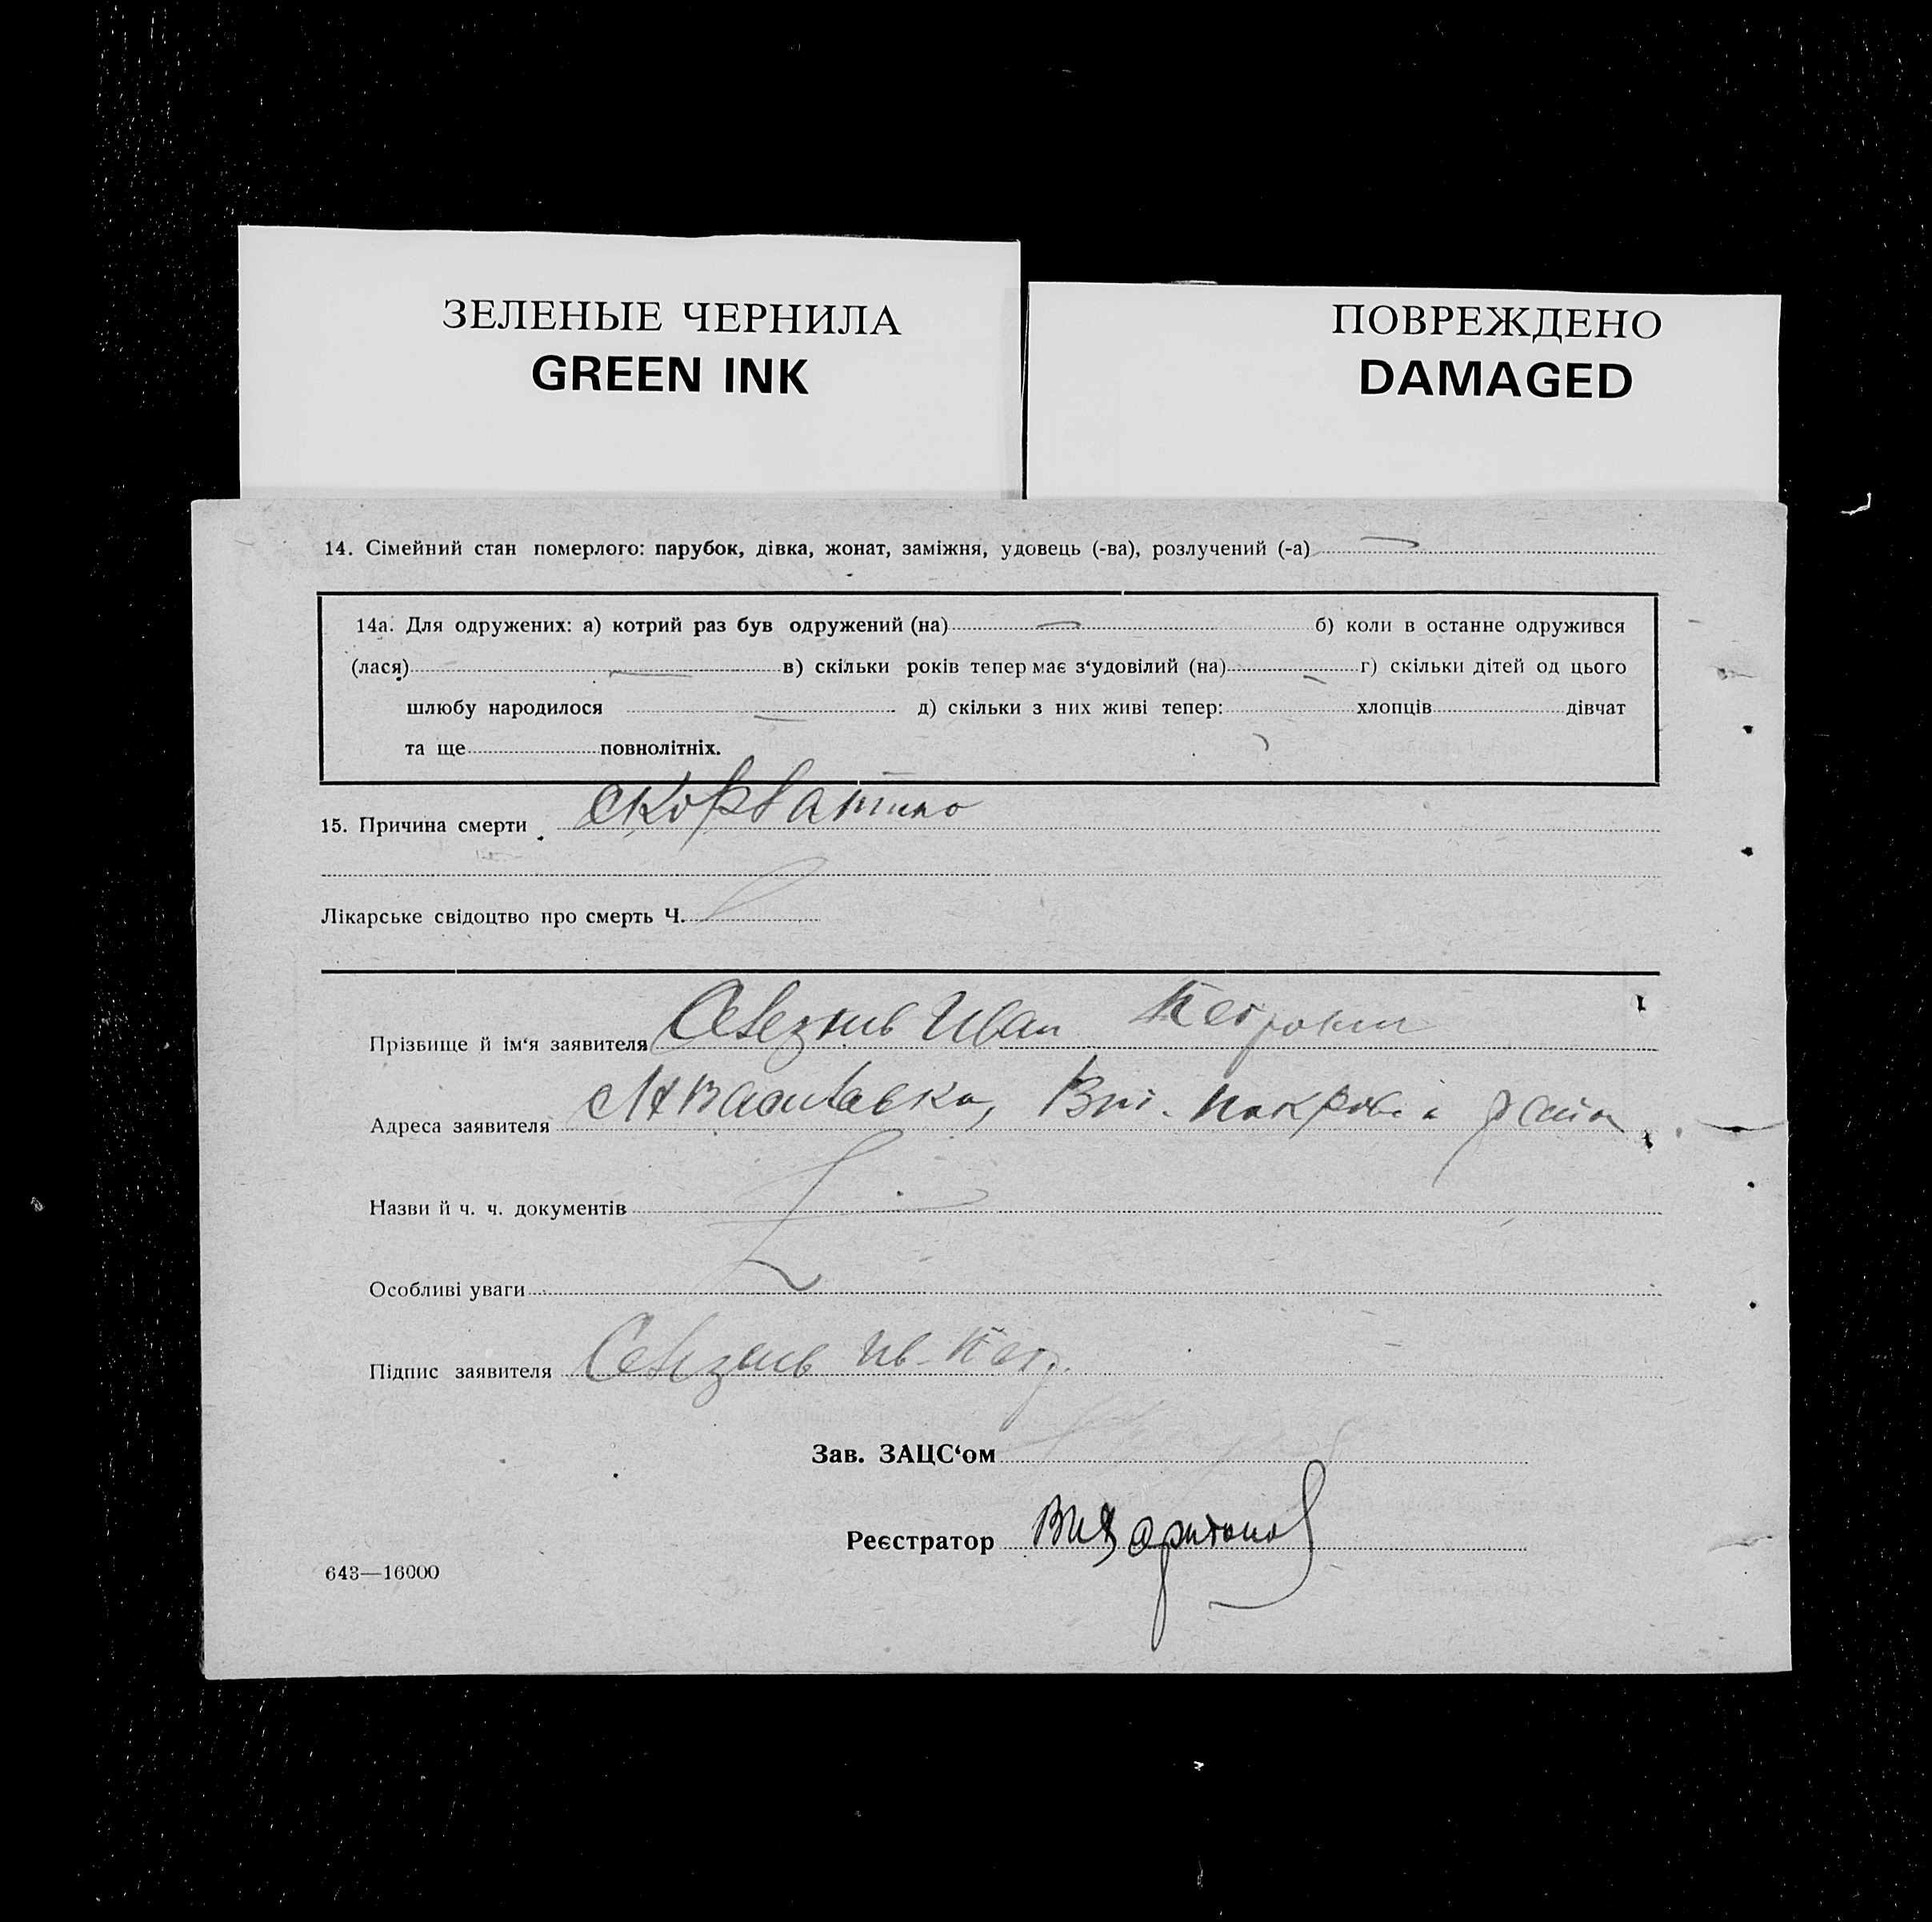 ЗЕЛЕНЫЕ ЧЕРНИЛА
GREEN INK
ПОВРЕЖДЕНО
DAMAGED
14. Сімейний стан померлого: парубок, дівка, жонат, заміжня, удовець (-ва), розлучений (-а)
14а. Для одружених: а) котрий раз був одружений (на) б) коли в останнє одружився
(лася) в) скільки років тепер має з‘удовілий (на) г) скільки дітей од цього
шлюбу народилося д) скільки з них живі тепер: хлопців дівчат
та ще повнолітніх.
15. Причина смерти
Лікарське свідоцтво про смерть Ч.
Прізвище й ім‘я заявителя Иван Петрович
Адреса заявителя район
Назви й ч. ч. документів
Особливі уваги
Підпис заявителя Ив. Петр.
Зав. ЗАЦС‘ом
Реєстратор
643—16000